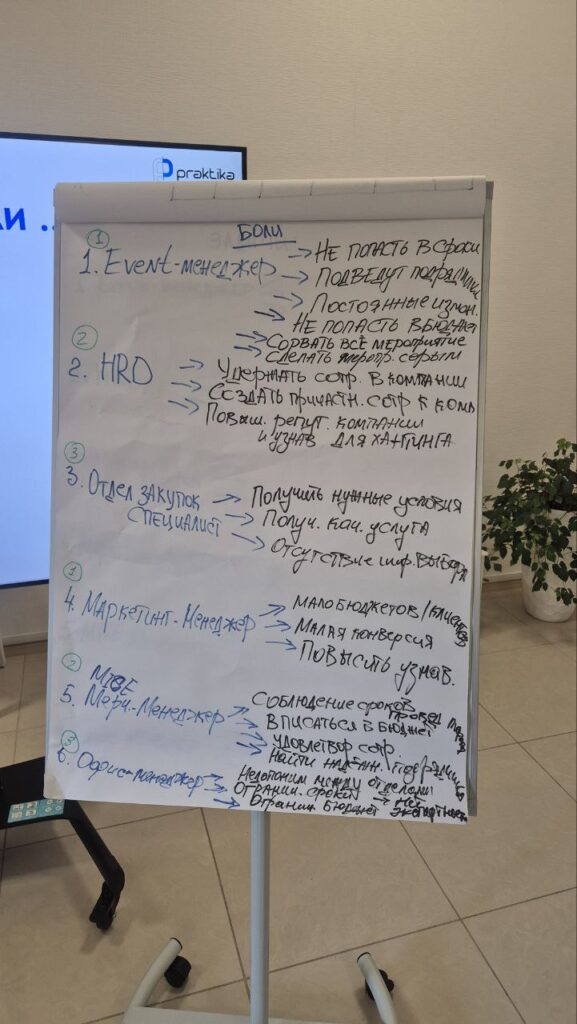 praktika
ЛИ ...
БОЛИ
1
1. Event-менеджер → НЕ ПОПАСТЬ В СРОКИ
→ ПОДВЕДУТ ПОДРЯДЧИКИ
→ ПОСТОЯННЫЕ ИЗМЕН.
→ НЕ ПОПАСТЬ В БЮДЖЕТ
→ СОРВАТЬ ВСЁ МЕРОПРИЯТИЕ
→ СДЕЛАТЬ МЕРОПР.
2
2. HRD → УДЕРЖАТЬ СОТР. В КОМПАНИИ
→ СОЗДАТЬ ПРИЧАСТН. СОТР К КОМП
→ ПОВЫШ. РЕПУТ. КОМПАНИИ
И УЗНАВ ДЛЯ ХАНТИНГА
3
3. ОТДЕЛ ЗАКУПОК → ПОЛУЧИТЬ НУЖНЫЕ УСЛОВИЯ
СПЕЦИАЛИСТ → ПОЛУЧ. КАЧ. УСЛУГА
→ ОТСУТСТВИЕ ВЫБОРА
1
4. МАРКЕТИНГ-МЕНЕДЖЕР → МАЛО БЮДЖЕТОВ/КЛИЕНТОВ
→ МАЛАЯ КОНВЕРСИЯ
→ ПОВЫСИТЬ УЗНАВ.
2
MICE
5. МЕНЕДЖЕР → СОБЛЮДЕНИЕ СРОКОВ
ПРОВЕД
→ ВПИСАТЬСЯ В БЮДЖЕТ
→ УДОВЛЕТВОР СОТР.
→ НАЙТИ ПОДРЯДЧИКА
3
6. ОФИС-МЕНЕДЖЕР → НЕДОПОНИМ МЕЖДУ ОТДЕЛАМИ
→ ОГРАНИЧ. СРОКИ → НЕТ ЭКСПЕРТНОСТИ
→ ОГРАНИЧ. БЮДЖЕТ